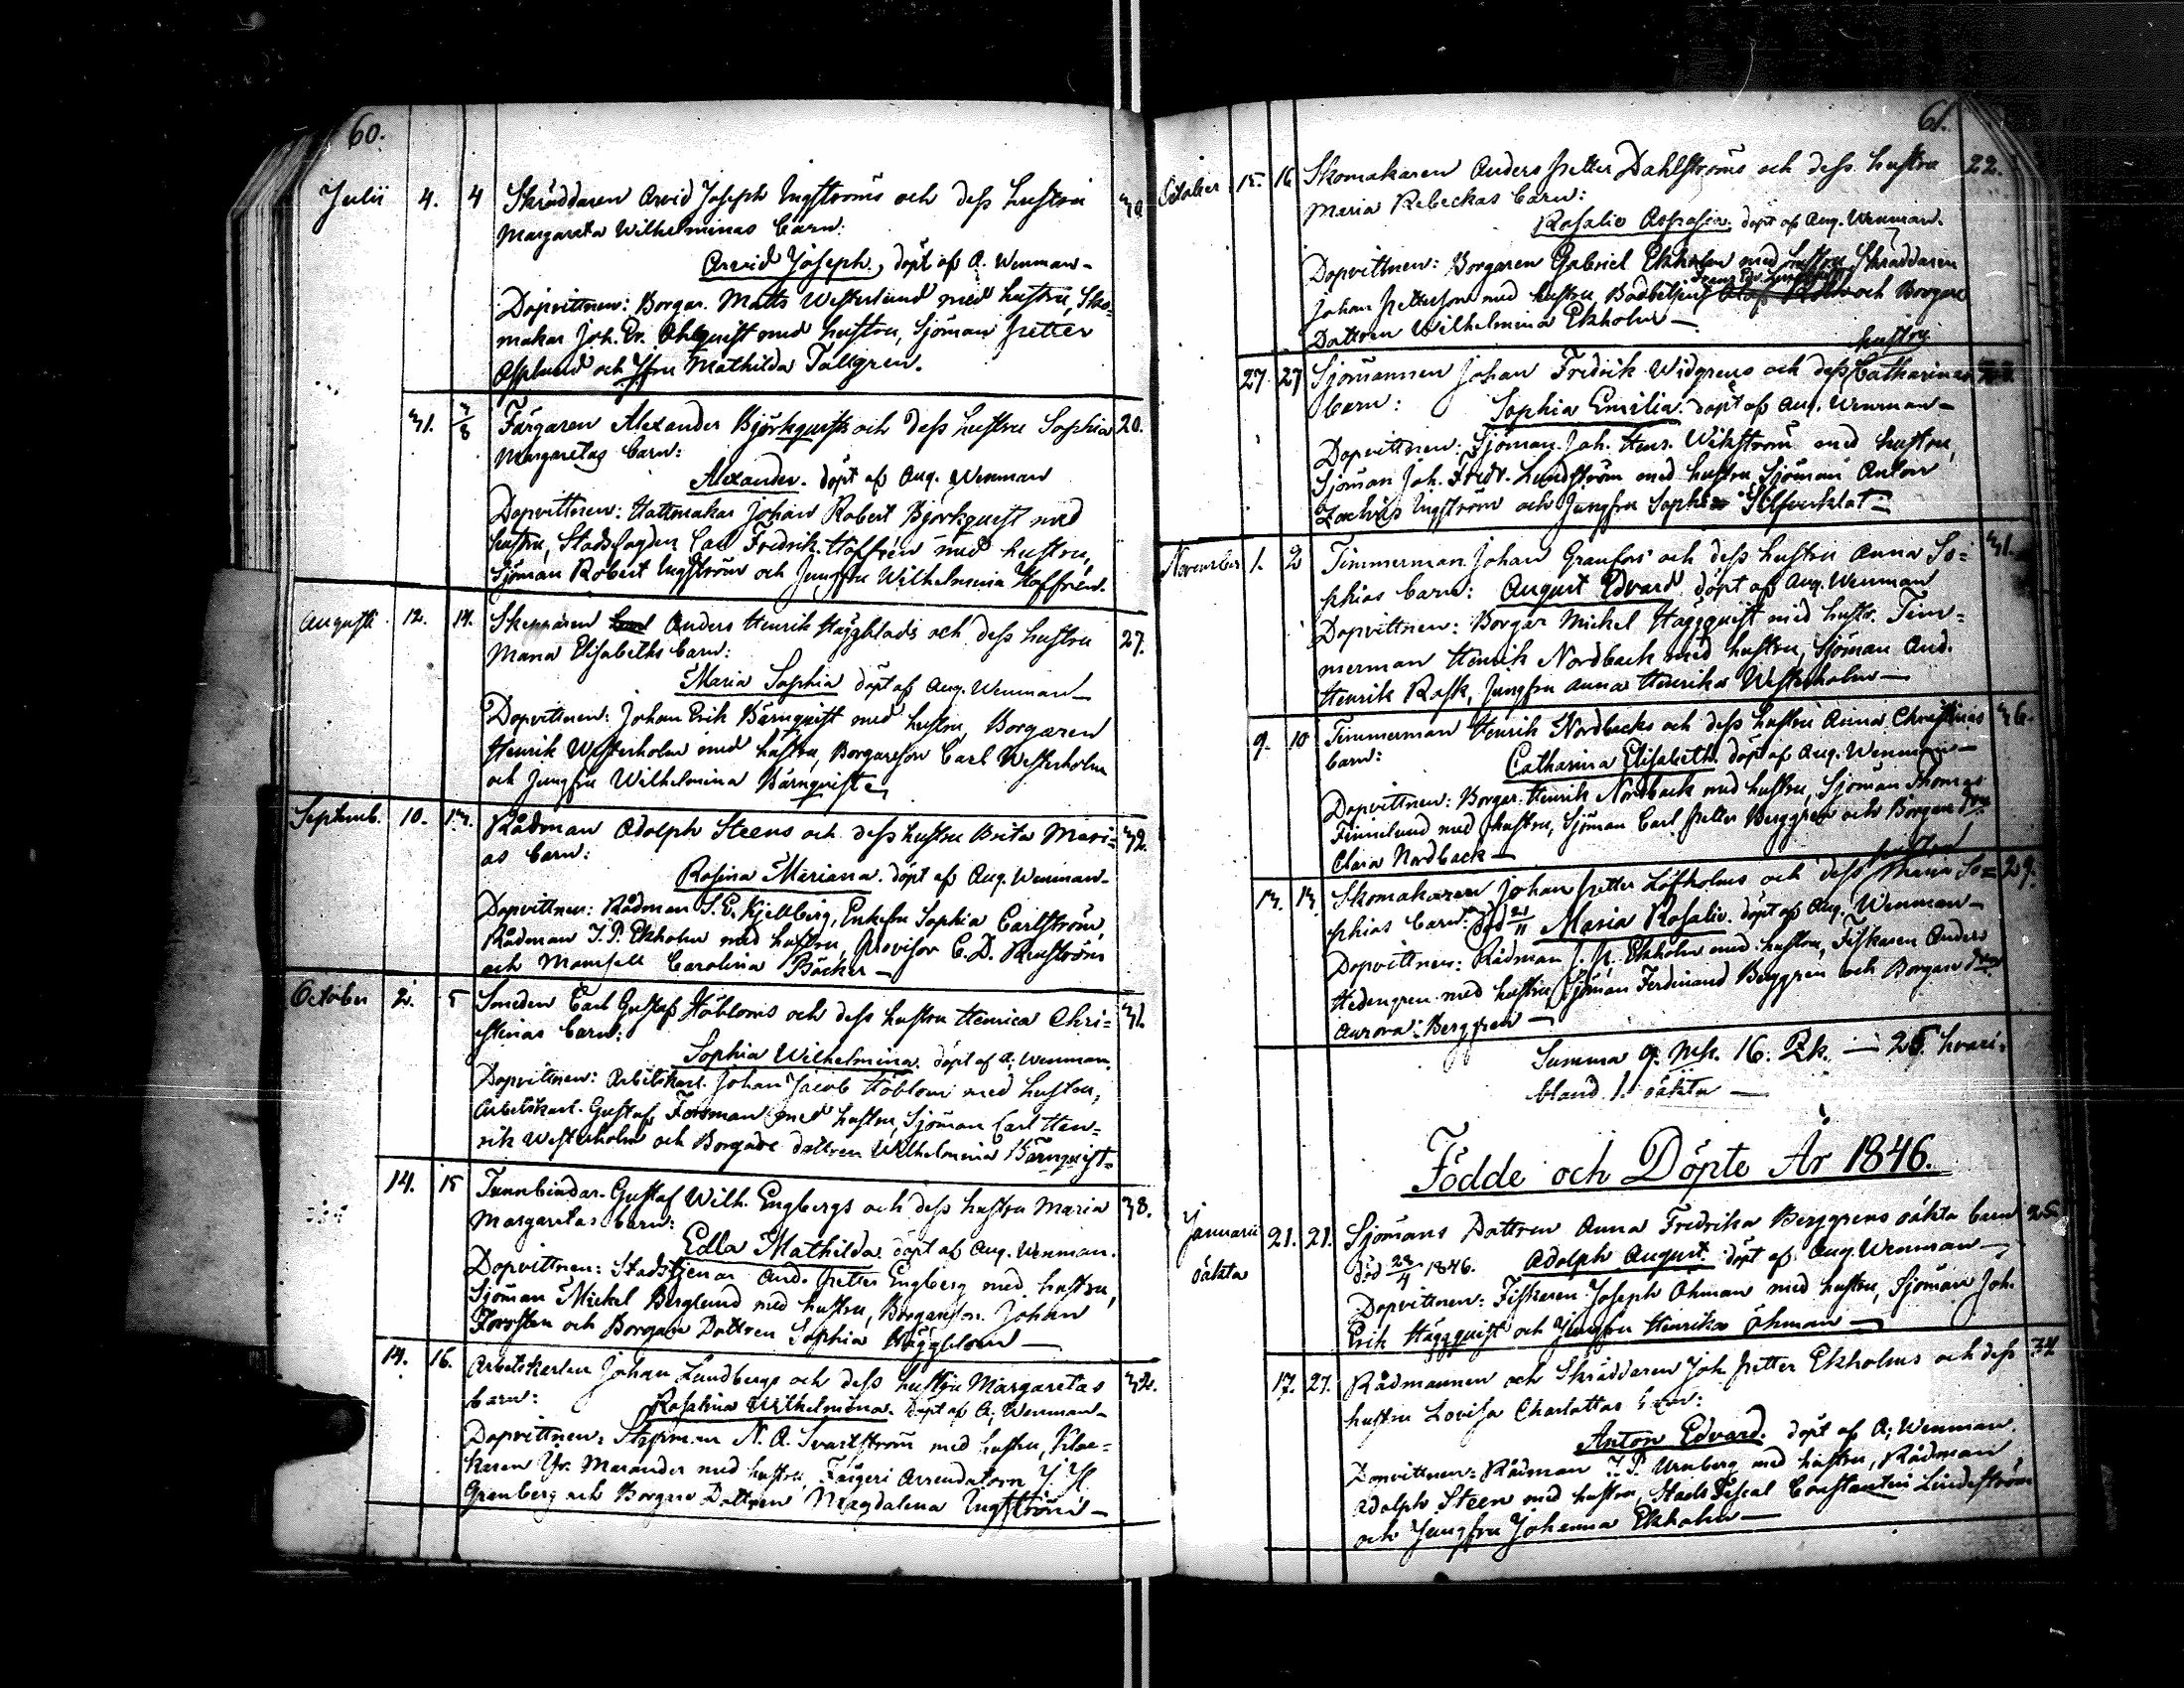 60.
Julii 4. 4 Skräddaren Arvid Joseph Ingströms och dess hustru
Margareta Wilhelminas barn:
Arvid Joseph, döpt af A. Wenman-
Dopvittnen: Borgar. Matts Westerlund med hustru, Sko-
makar Joh. Er. Öhlquist med hustru, Sjöman Petter
Asplund och Jfru Mathilda Tallgren.
31. 3/8 Färgaren Alexander Björkquists och dess hustru Sophia 20.
Margaretas barn:
Alexander. döpt af Aug. Wenman
Dopvittnen: Hattmakar Johan Robert Björkquist med
hustru, Stadsfogden Carl Fredrik Hoffrén med hustru,
Sjöman Robert Ingström och Jungfru Wilhelmina Hoffrén.
Augusti 12. 14. Skepparen Anders Henrik Häggblads och dess hustru 27.
Maria Elisabeths barn:
Maria Sophia döpt af Aug. Wenman-
Dopvittnen: Johan Erik Bärnquist med hustru, Borgaren
Henrik Westerholm med hustru, Borgareson Carl Westerholm
och Jungfru Wilhelmina Bärnquist-
Septemb. 10. 13. Rådman Adolph Steens och dess hustru Brita Mari= 32.
as barn:
Rosina Mariana. döpt af Aug. Wenman-
Dopvittnen: Rådman S. E. Kjellberg, Enkefru Sophia Carlström,
Rådman J. P. Ekholm med hustru, Provisor C. D. Renström
och Mamsell Carolina Bäcker-
October 2. 5 Smeden Carl Gustaf Höbloms och dess hustru Henrica Chri= 31.
stinas barn:
Sophia Wilhelmina. döpt af A. Wenman.
Dopvittnen: Arbetskarl. Johan Jacob Höblom med hustru,
Arbetskarl. Gustaf Forsman med hustru, Sjöman Carl Hen=
rik Westerholm och Borgare dottren Wilhelmina Bärnquist-
14. 15 Tunnbindar. Gustaf Wilh. Engbergs och dess hustru Maria 38.
Margaretas barn:
Edla Mathilda. döpt af Aug. Wenman.
Dopvittnen: Stadstjenar And. Petter Engberg med hustru,
Sjöman Mickel Berglund med hustru, Borgareson Johan
Forssten och Borgare Dottren Sophia Häggblom-
14. 16. Arbetskarlen Johan Lundbergs och dess hustru Margaretas 32.
barn: Rosalina Wilhelmina. döpt af A. Wenman-
Dopvittnen: Styrman N. A. Svartström med hustru, Kloc-
karen Marander med hustru, Färgeri Arrendatorn
Grönberg och Borgare Dottren Magdalena Ingström-
61.
October 15. 16 Skomakaren Anders Petter Dahlströms och dess hustru 22.
Maria Rebeckas barn:
Rosalie Aspasia. döpt af Aug. Wenman.
Dopvittnen: Borgaren Gabriel Ekholm med hustru, Skräddaren
Johan Petterson med hustru, och Borgare
Dottren Wilhelmina Ekholm-
hustru
27. 27 Sjömannen Johan Fredrik Widgrens och dess Catharinas
barn: Sophia Emilia. döpt af Aug. Wenman-
Dopvittnen: Sjöman. Joh. Henr. Wikström med hustru,
Sjöman Joh. Fredr. Lundström med hustru, Sjöman Anton
Ingström och Jungfru Sophie
November 1. 2 Timmerman Johan Granfors och dess hustru Anna So= 31.
phias barn: August Edvard döpt af Aug. Wenman
Dopvittnen: Borgar Mickel Häggquist med hustr. Tim=
merman Henrik Nordback med hustru, Sjöman And.
Henrik Rosk, Jungfru Anna Henrika Westerholm-
9. 10 Timmerman Henrik Nordbacks och dess hustru Anna Christinas 36.
barn: Catharina Elisabeth. döpt af Aug. Wenman-
Dopvittnen: Borgar. Henrik Nordback med hustru, Sjöman Thomas
Finnilund med hustru, Sjöman Carl Petter Berggren och Borgare
Clara Nordback-
hustru
13. 13. Skomakaren Johan Petter Löfholms och dess Maria So= 29.
phias barn: död 21/11 Maria Rosalie. döpt af Aug. Wenman-
Dopvittnen: Rådman J. P. Ekholm med hustru, Fiskaren Anders
Hedengren med hustru, Sjöman Ferdinand Berggren och Borgare
Aurora Berggren-
Summa 9. Mk. 16. Qk. — 25. hvari-
bland 1. oäkta —
Födde och Döpte År 1846.
Januarii 21. 21. Sjömans Dottren Anna Fredrika Berggrens oäkta barn 25
oäkta död 28/4 1846. Adolph August. döpt af Aug. Wenman-
Dopvittnen: Fiskaren Joseph Öhman med hustru, Sjöman Joh.
Erik Häggquist och Jungfru Henrika Öhman-
17. 27. Rådmannen och Skräddaren Joh. Petter Ekholms och dess 34
hustru Lovisa Charlottas barn:
Anton Edvard. döpt af A. Wenman.
Dopvittnen: Rådman J. P. Urnberg med hustru, Rådman
Adolph Steen med hustru, Stads Fiscal Constantin Lindeström
och Jungfru Johanna Ekholm-